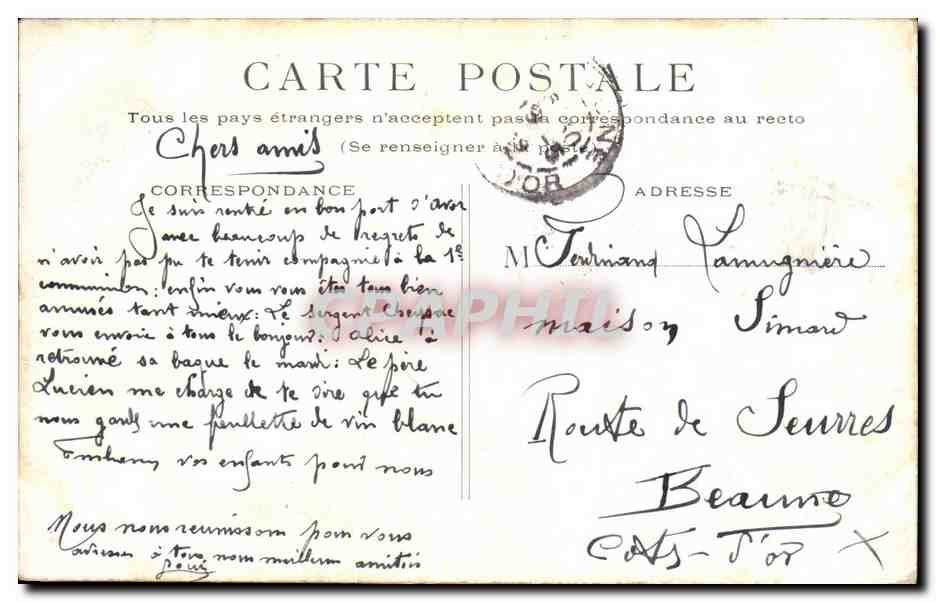 CARTE POSTALE
Tous les pays étrangers n'acceptent pas la correspondance au recto
(Se renseigner à la poste)
Chers amis
CORRESPONDANCE
Je suis rentré en bon port d'avoir
avec beaucoup de regrets de
n'avoir pas pu te tenir compagnie à la 1e
communion: enfin vous vous êtes tous bien
amusés tant mieux: Le sergent
vous envoie à tous le bonjour: Alice à
retrouvé sa bague le mardi: Le père
Lucien me charge de te dire que tu
nous garde une feuillette de vin blanc
Embrasse vos enfants pour nous
Nous nous reunissons pour vous
adresser à tous nos meilleurs amitiés
Louis
ADRESSE
M Ferdinand Lamugnière
maison Simard
Route de Seurres
Beaune
Cote-d'or
D'OR
CRAPHIL